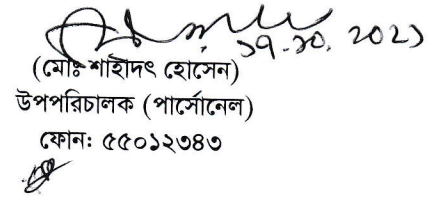 ১৭.১০.2021
(মোঃ শাহীদৎ হোসেন)
উপপরিচালক (পার্সোনেল)
ফোন: ৫৫০১২৩৪৩